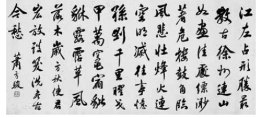 江左占形勝最
數古徐州連山
如畫佳處縹渺
著危樓鼓角臨
風悲壯烽火連
空明滅往事憶
孫劉千里曜戈
甲萬竈宿貔
貅露霑草風
落木歲方秋使君
宏放談笑洗盡古
今愁